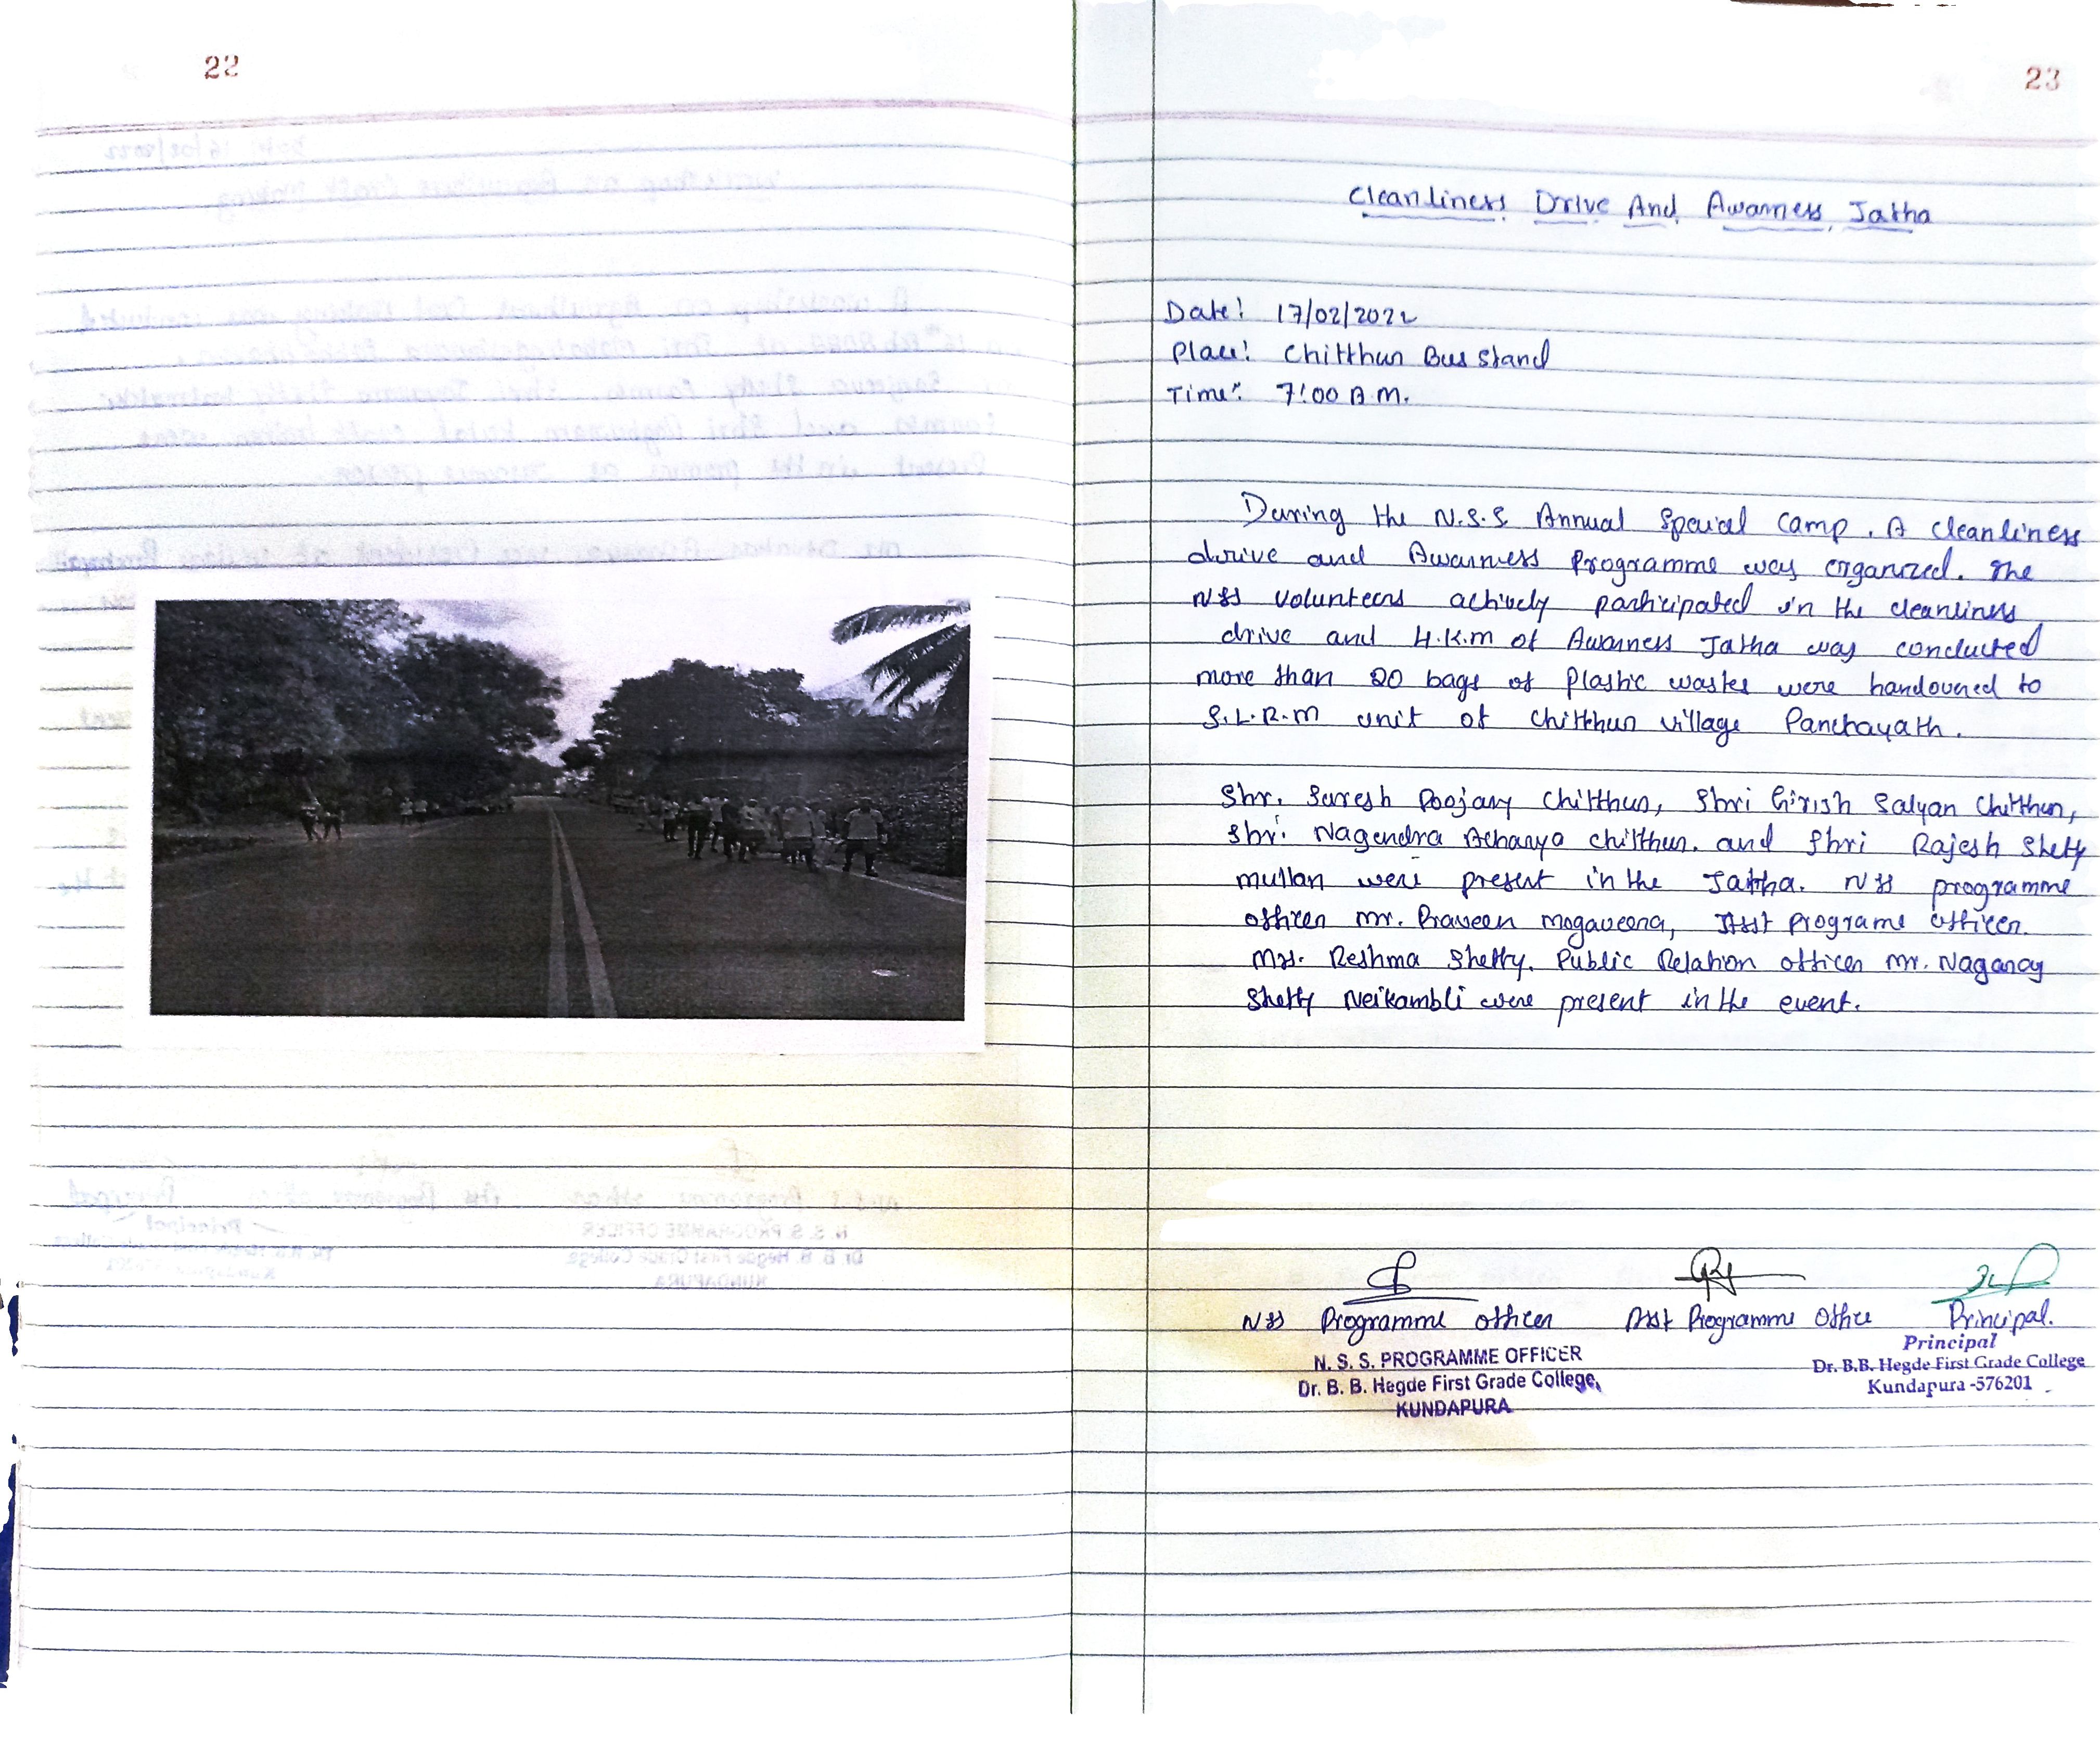 22
23
Cleanliness Drive And Awarness Jatha
Date: 17/02/2022
Place: Chitthur Bus Stand
Time: 7:00 A.M.
During the N.S.S Annual Special Camp. A cleanliness
drive and Awarness Programme was organized. The
NSS volunteers actively participated in the cleanliness
drive and 4.K.m of Awarness Jatha was conducted
more than 20 bags of Plastic wastes were handovered to
S.L.R.M unit of Chitthur village Panchayath.
Shr. Suresh Poojary Chitthur, Shri Girish Salyan Chitthur,
Shri Nagendra Acharya Chitthur. and Shri Rajesh Shetty
mullan were present in the Jatha. NSS programme
officer Mr. Praveen Mogaveera, Asst Programe officer.
Mrs. Reshma Shetty. Public Relation officer Mr. Nagaraj
Shetty Neikambli were present in the event.
NSS Programme officer Asst Programme Office Principal.
N. S. S. PROGRAMME OFFICER
Dr. B. B. Hegde First Grade College,
KUNDAPURA
Principal
Dr. B.B. Hegde First Grade College
Kundapura -576201